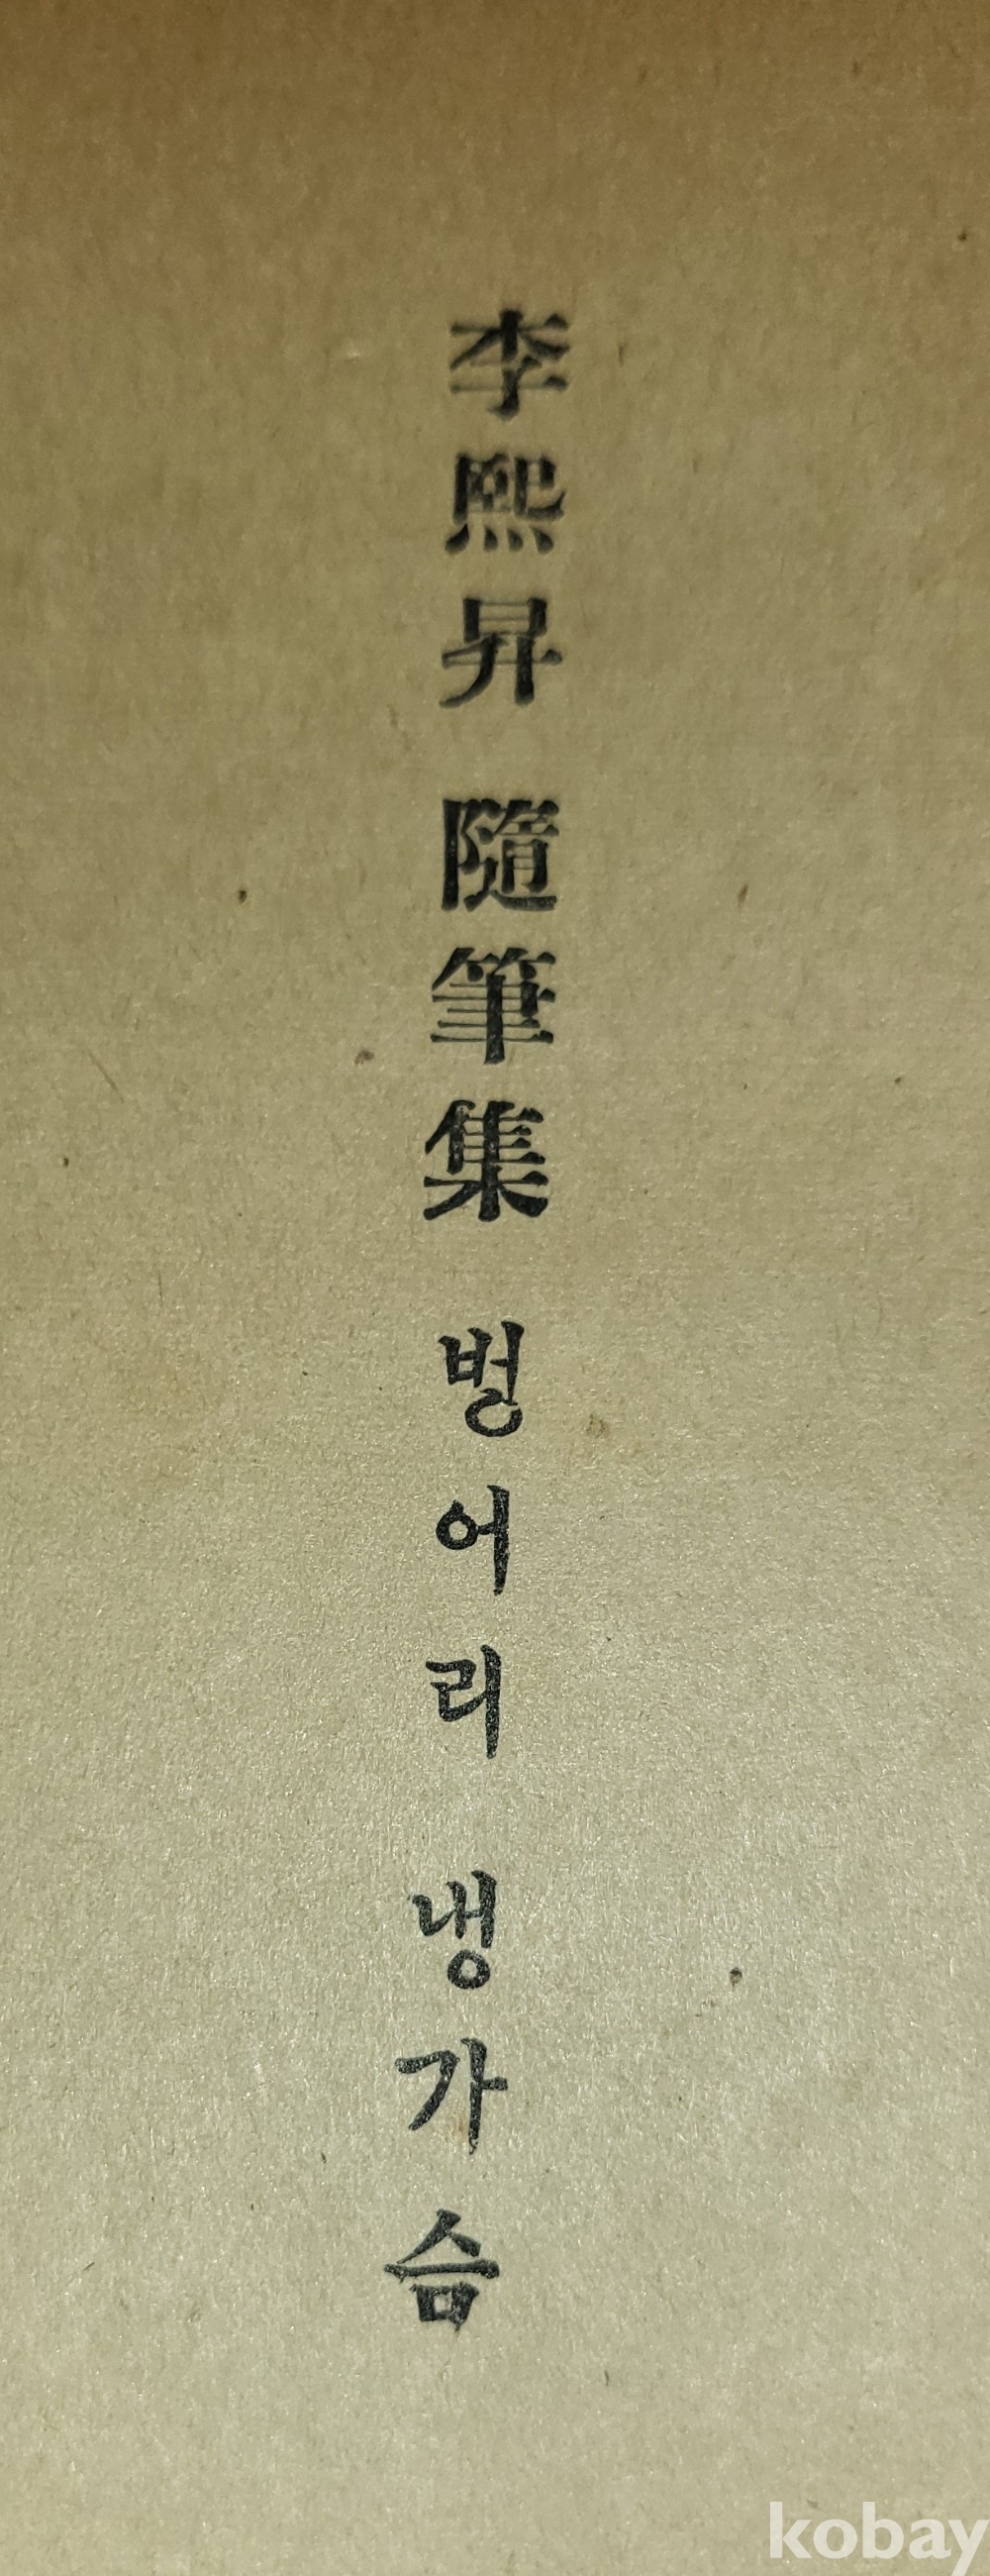 李熙昇 隨筆集 벙어리 냉가슴
kobay